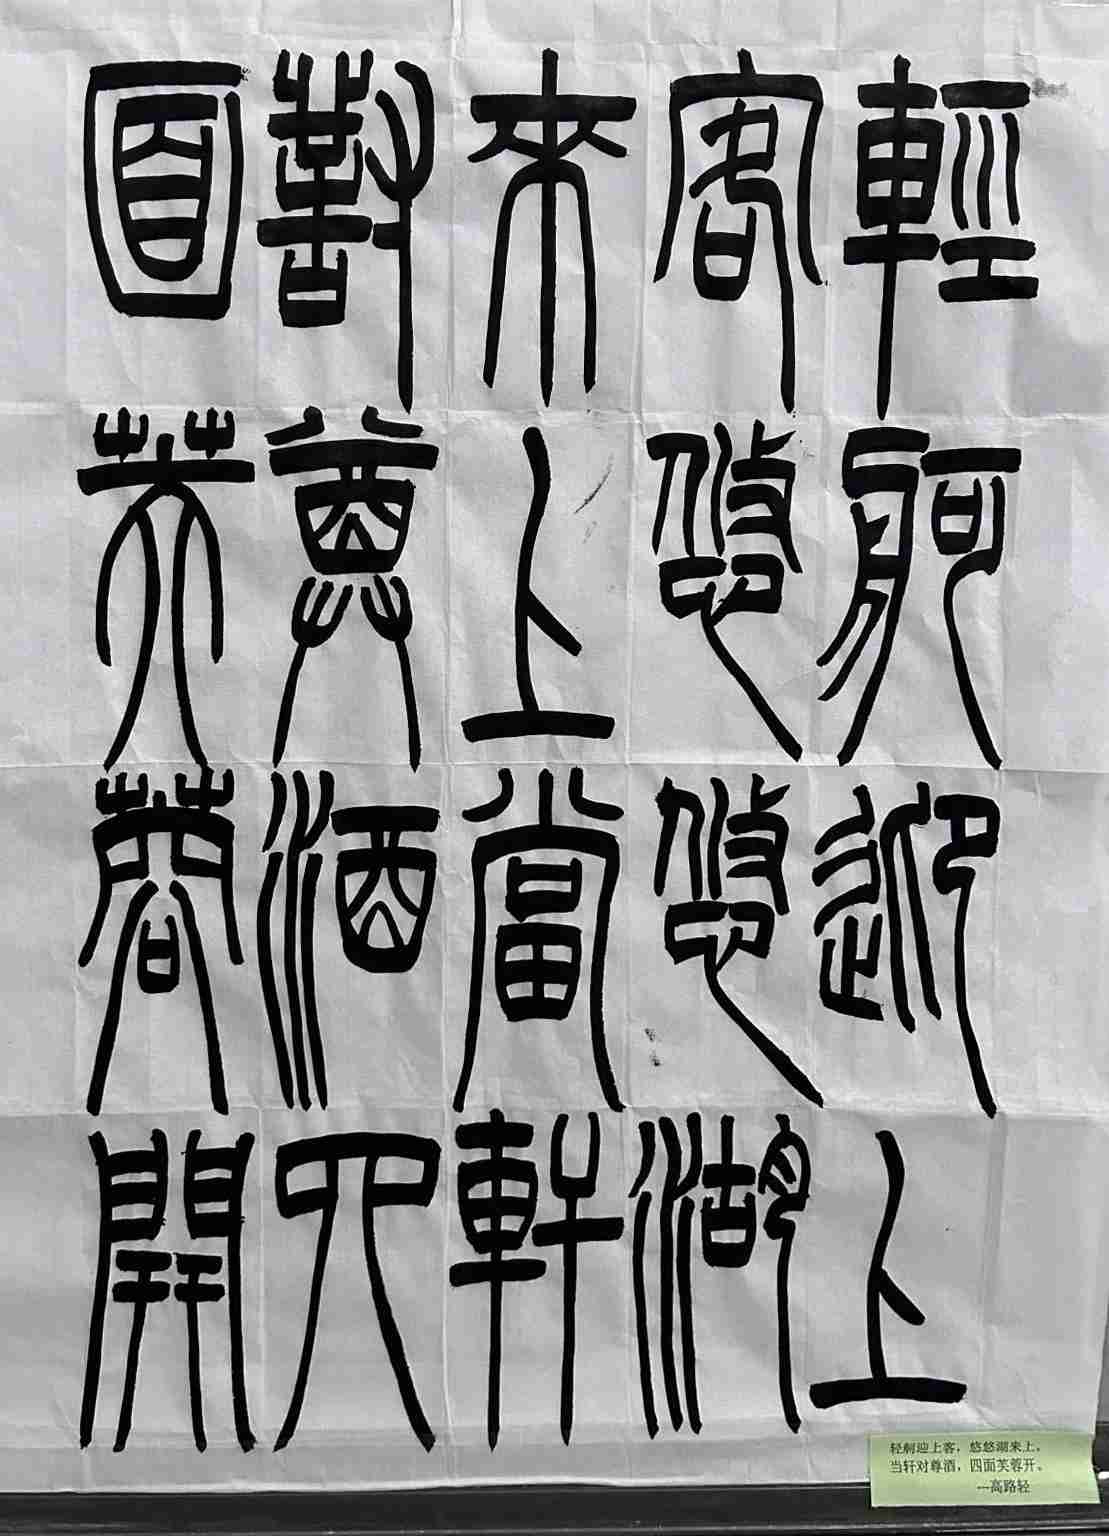 輕舸迎上
客悠悠湖
來上當軒
對尊酒四
面芙蓉開
轻舸迎上客，悠悠湖来上。
当轩对尊酒，四面芙蓉开。
---高路轻